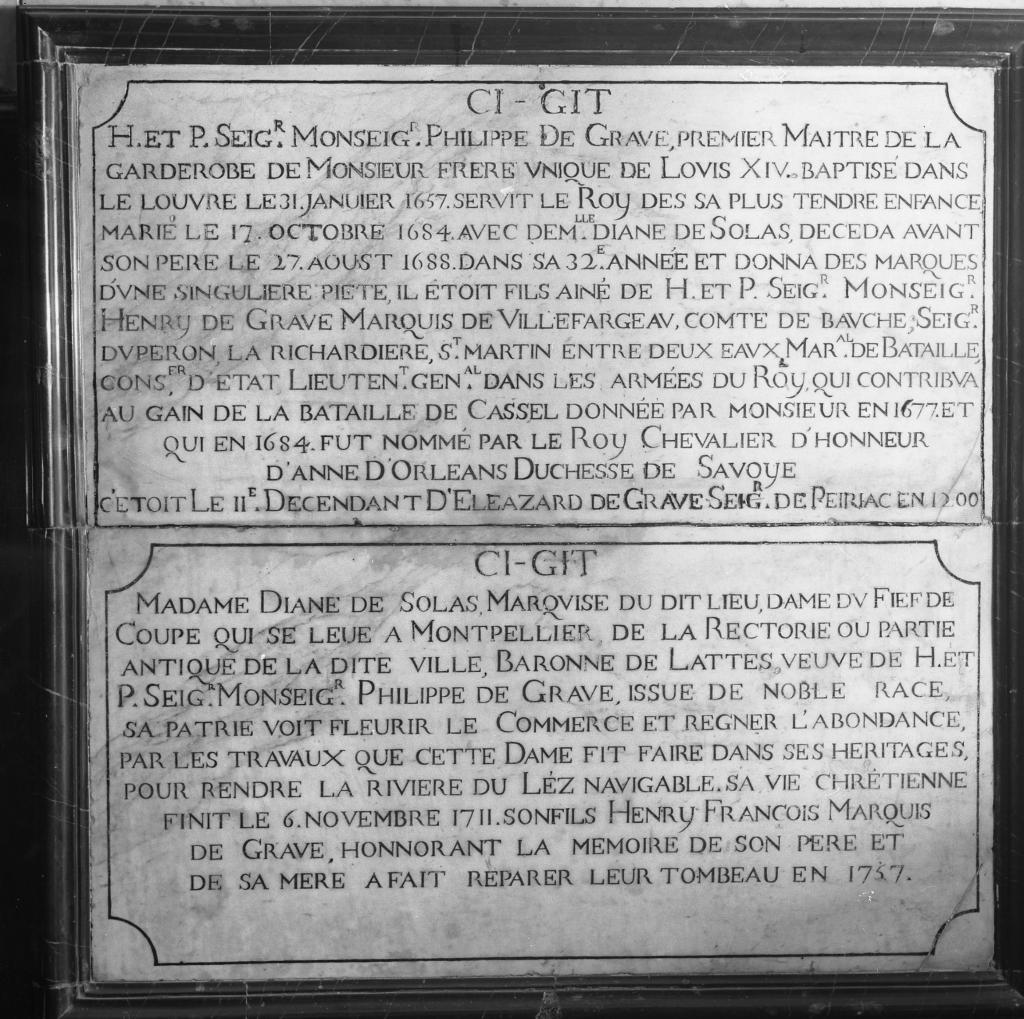 CI-GIT
H. ET P. SEIGR. MONSEIGR. PHILIPPE DE GRAVE, PREMIER MAITRE DE LA
GARDEROBE DE MONSIEUR FRERE VNIQUE DE LOVIS XIV. BAPTISÉ DANS
LE LOUVRE LE 31. JANUIER 1657. SERVIT LE ROY DES SA PLUS TENDRE ENFANCE
MARIÉ LE 17. OCTOBRE 1684. AVEC DEMLLE. DIANE DE SOLAS, DECEDA AVANT
SON PERE LE 27. AOUST 1688. DANS SA 32E. ANNÉE ET DONNA DES MARQUES
D'VNE SINGULIERE PIETE, IL ÉTOIT FILS AINÉ DE H. ET P. SEIGR. MONSEIGR.
HENRY DE GRAVE MARQUIS DE VILLEFARGEAV, COMTE DE BAVCHE, SEIGR.
DVPERON, LA RICHARDIERE, ST. MARTIN ENTRE DEUX EAVX, MARAL. DE BATAILLE,
CONSER. D'ETAT LIEUTENT. GENAL. DANS LES ARMÉES DU ROY, QUI CONTRIBVA
AU GAIN DE LA BATAILLE DE CASSEL DONNÉE PAR MONSIEUR EN 1677. ET
QUI EN 1684. FUT NOMMÉ PAR LE ROY CHEVALIER D'HONNEUR
D'ANNE D'ORLEANS DUCHESSE DE SAVOYE
C'ETOIT LE 11E. DECENDANT D'ELEAZARD DE GRAVE SEIGR. DE PEIRIAC EN 1200
CI-GIT
MADAME DIANE DE SOLAS, MARQVISE DU DIT LIEU, DAME DV FIEF DE
COUPE QUI SE LEUE A MONTPELLIER, DE LA RECTORIE OU PARTIE
ANTIQUE DE LA DITE VILLE, BARONNE DE LATTES, VEUVE DE H. ET
P. SEIGR. MONSEIGR. PHILIPPE DE GRAVE, ISSUE DE NOBLE RACE,
SA PATRIE VOIT FLEURIR LE COMMERCE ET REGNER L'ABONDANCE,
PAR LES TRAVAUX QUE CETTE DAME FIT FAIRE DANS SES HERITAGES,
POUR RENDRE LA RIVIERE DU LÉZ NAVIGABLE. SA VIE CHRÉTIENNE
FINIT LE 6. NOVEMBRE 1711. SON FILS HENRY FRANCOIS MARQUIS
DE GRAVE, HONNORANT LA MEMOIRE DE SON PERE ET
DE SA MERE A FAIT REPARER LEUR TOMBEAU EN 1757.